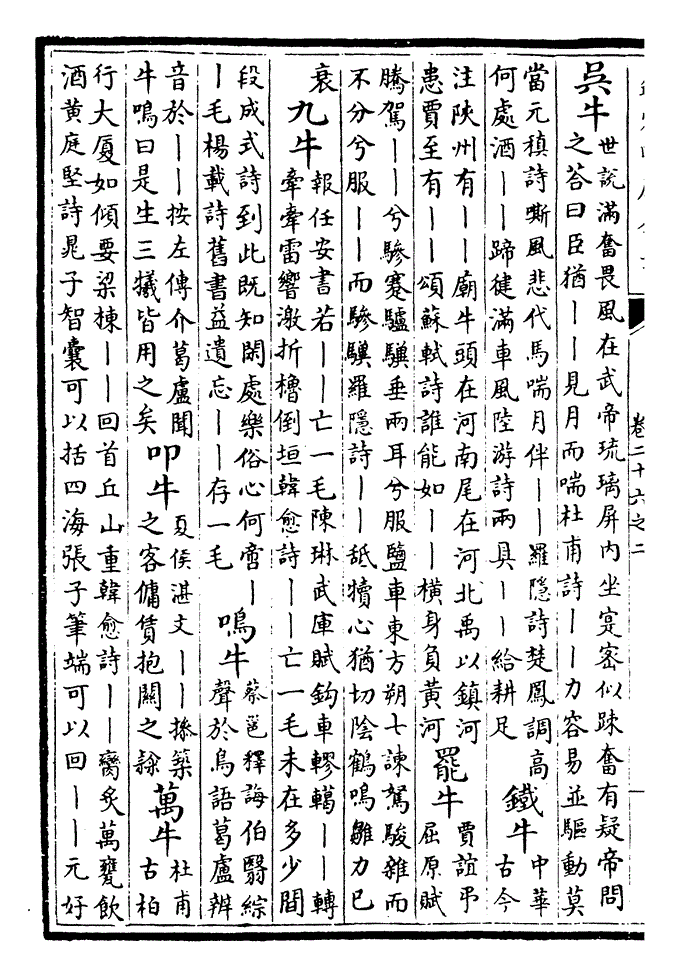 卷二十六之二
吳牛 世說滿奮畏風在武帝琉璃屏內坐寔宻似踈奮有疑帝問
之荅曰臣猶丨丨見月而喘杜甫詩丨丨力容易並驅動莫
當元稹詩嘶風悲代馬喘月伴丨丨羅隱詩楚鳳調高
何處酒丨丨蹄健滿車風陸游詩兩具丨丨給耕足
鐵牛 中華
古今
注陝州有丨丨廟牛頭在河南尾在河北禹以鎮河
患賈至有丨丨頌蘇軾詩誰能如丨丨橫身負黃河
罷牛 賈誼弔
屈原賦
騰駕丨丨兮驂蹇驢驥垂兩耳兮服鹽車東方朔七諫駑駿雜而
不分兮服丨丨而驂驥羅隱詩丨丨舐犢心猶切陰鶴鳴雛力已
衰
九牛 報任安書若丨丨亡一毛陳琳武庫賦鈎車轇轕丨丨轉
牽牽雷響激折櫓倒垣韓愈詩丨丨亡一毛未在多少間
段成式詩到此既知閑處樂俗心何啻丨
丨毛楊載詩舊書益遺忘丨丨存一毛
鳴牛 蔡邕釋誨伯翳綜
聲於鳥語葛盧辨
音於丨丨按左傳介葛盧聞
牛鳴曰是生三犧皆用之矣
叩牛 夏侯湛文丨丨摻築
之客傭賃抱關之隸
萬牛 杜甫
古柏
行大厦如傾要梁棟丨丨回首丘山重韓愈詩丨丨臠炙萬甕飲
酒黃庭堅詩晁子智囊可以括四海張子筆端可以回丨丨元好